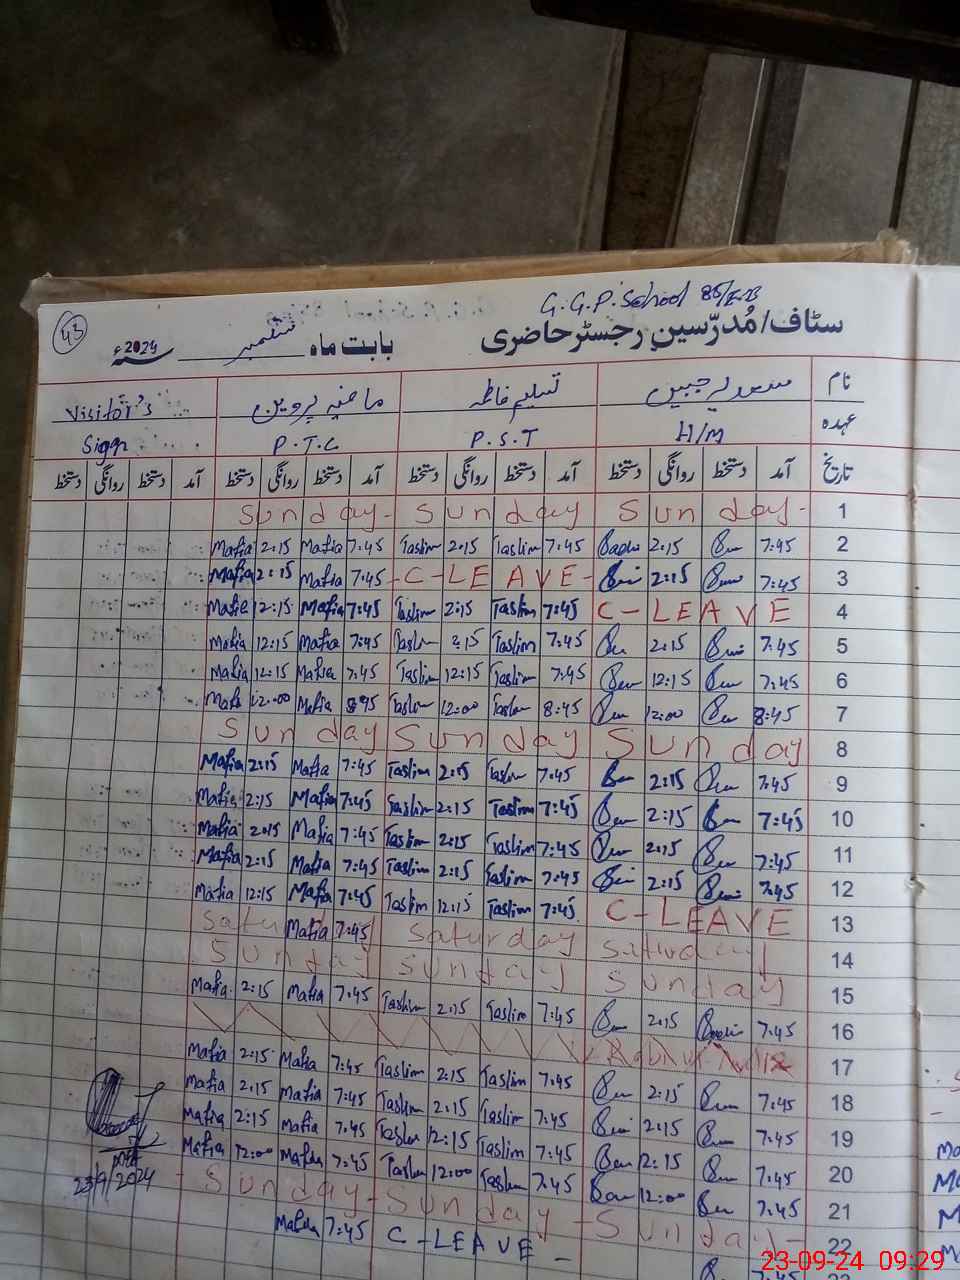 G.G.P. School 85/EB
43
سٹاف/مُدرّسین رجسٹر حاضری بابت ماہ ستمبر 2024ء
نام تسلیم فاطمہ Visitor's
عہدہ H/M P.S.T P.T.C Sign
تاریخ آمد دستخط روانگی دستخط آمد دستخط روانگی دستخط آمد دستخط روانگی دستخط آمد دستخط روانگی دستخط
Sunday- Sunday Sunday- 1
Mafia 2:15 Mafia 7:45 Taslim 2:15 Taslim 7:45 2:15 7:45 2
Mafia 2:15 Mafia 7:45 -C-LEAVE- 2:15 7:45 3
Mafia 12:15 Mafia 7:45 Taslim 2:15 Taslim 7:45 C-LEAVE 4
Mafia 12:15 Mafia 7:45 Taslim 2:15 Taslim 7:45 2:15 7:45 5
Mafia 12:15 Mafia 7:45 Taslim 12:15 Taslim 7:45 12:15 7:45 6
Mafia 12:00 Mafia 8:45 Taslim 12:00 Taslim 8:45 12:00 8:45 7
Sunday Sunday Sunday 8
Mafia 2:15 Mafia 7:45 Taslim 2:15 Taslim 7:45 2:15 7:45 9
Mafia 2:15 Mafia 7:45 Taslim 2:15 Taslim 7:45 2:15 7:45 10
Mafia 2:15 Mafia 7:45 Taslim 2:15 Taslim 7:45 2:15 7:45 11
Mafia 2:15 Mafia 7:45 Taslim 2:15 Taslim 7:45 2:15 7:45 12
Mafia 12:15 Mafia 7:45 Taslim 12:15 Taslim 7:45 C-LEAVE 13
Mafia 7:45 Saturday Saturday 14
Sunday Sunday Sunday 15
Mafia 2:15 Mafia 7:45 Taslim 2:15 Taslim 7:45 2:15 7:45 16
17
Mafia 2:15 Mafia 7:45 Taslim 2:15 Taslim 7:45 2:15 7:45 18
Mafia 2:15 Mafia 7:45 Taslim 2:15 Taslim 7:45 2:15 7:45 19
Mafia 2:15 Mafia 7:45 Taslim 12:15 Taslim 7:45 12:15 7:45 20
Mafia 12:00 Mafia 7:45 Taslim 12:00 Taslim 7:45 12:00 7:45 21
23/9/2024 Sunday- Sunday -Sunday- 22
Mafia 7:45 C-LEAVE -
23-09-24 09:29